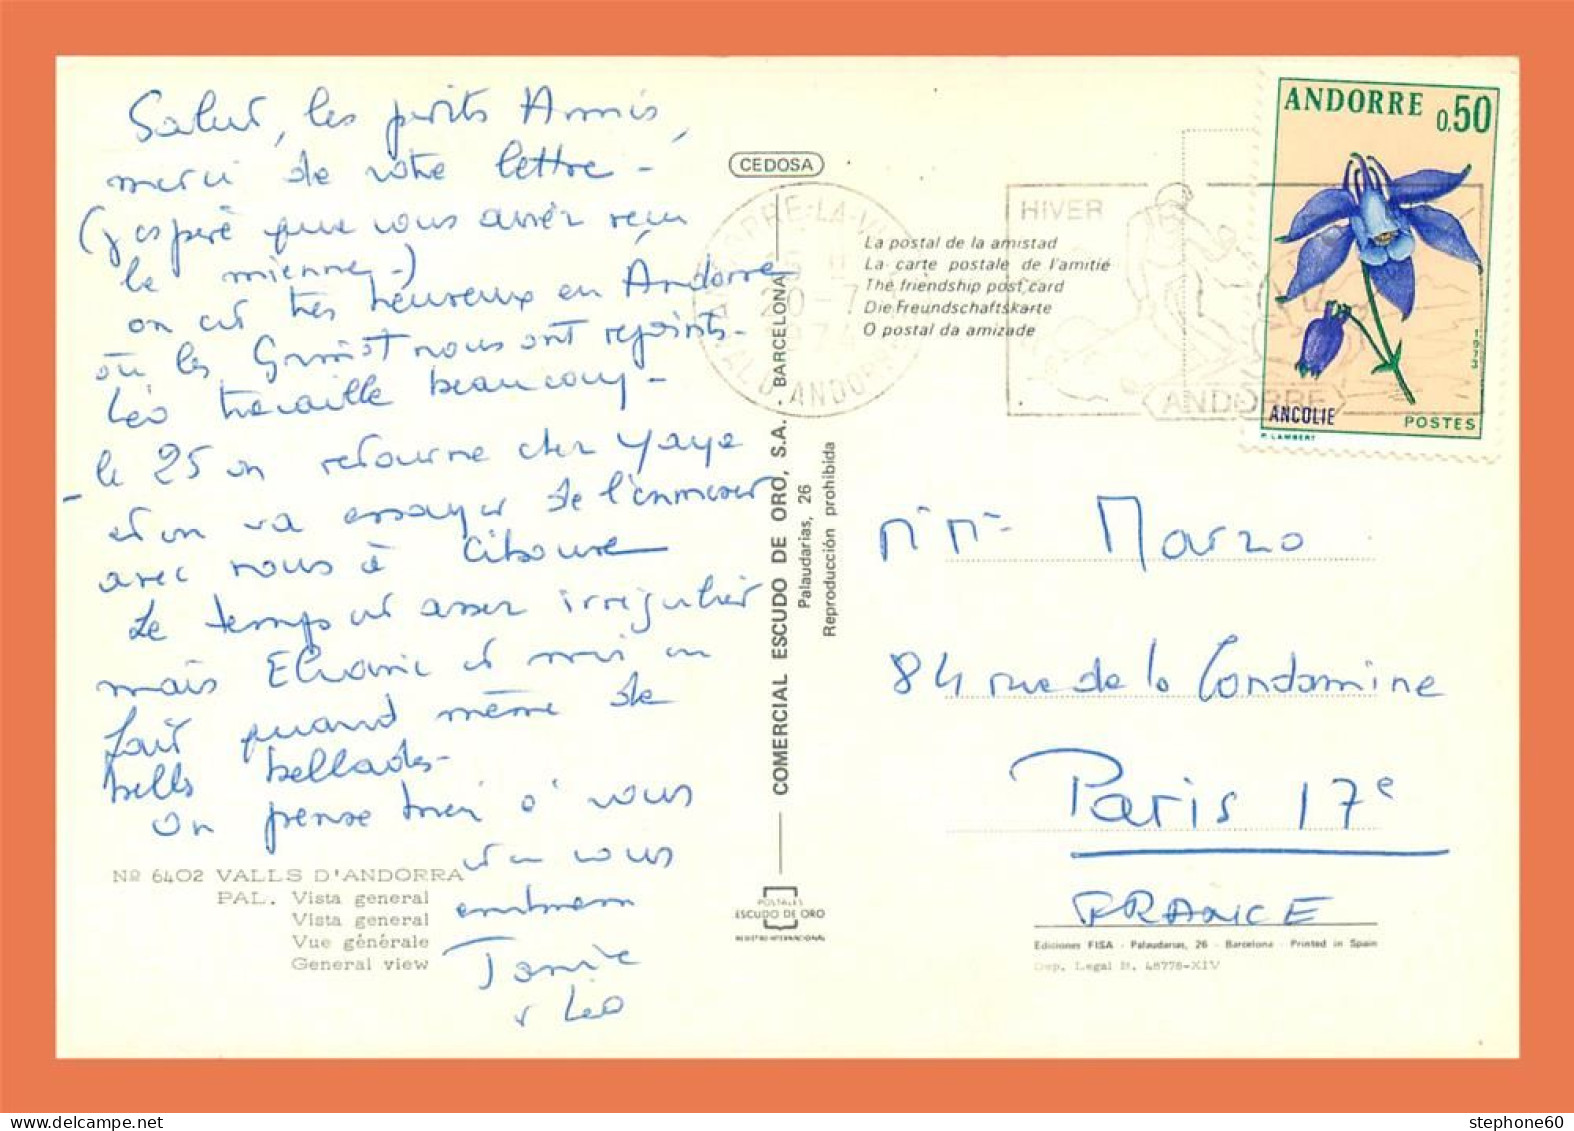 Salut, les petits Amis,
merci de votre lettre -
(j'espère que vous avez reçu
la mienne -)
on est très heureux en Andorre
où les nous ont rejoints -
Léo travaille beaucoup -
le 25 on retourne chez Yaya
et on va essayer de l'emmener
avec nous à Ciboure
Le temps est assez irrégulier
mais et moi on
fait quand même de
belles ballades -
On pense bien à vous
et on vous
embrasse
Léo
Nº 6402 VALLS D'ANDORRA
PAL. Vista general
Vista general
Vue générale
General view
CEDOSA
COMERCIAL ESCUDO DE ORO, S.A. - BARCELONA
Palaudarias, 26
Reproducción prohibida
POSTALES
ESCUDO DE ORO
REGISTRO INTERNACIONAL
La postal de la amistad
La carte postale de l'amitié
The friendship post card
Die Freundschaftskarte
O postal da amizade
HIVER
ANDORRE
ANDORRE
0.50
1973
ANCOLIE
POSTES
P. LAMBERT
Mr Me Marzo
84 rue de la Condamine
Paris 17e
FRANCE
Ediciones FISA - Palaudarias, 26 - Barcelona - Printed in Spain
Dep. Legal B. 48778-XIV
stephone60